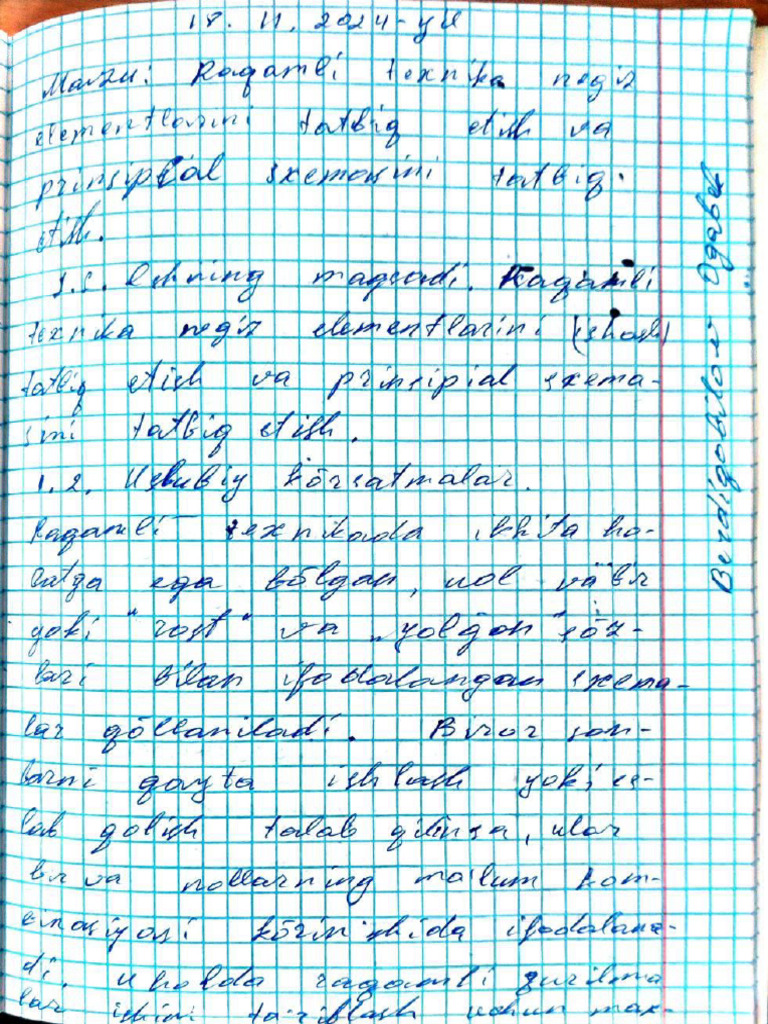 18. 11. 2024-yil
Mavzu: Raqamli texnika negiz
elementlarini tatbiq etish va
prinsipial sxemasini tatbiq
etish.
1.1. Ishning maqsadi. Raqamli
texnika negiz elementlarini (ishlash)
tatbiq etish va prinsipial sxema-
sini tatbiq etish.
1.2. Uslubiy körsatmalar.
Raqamli texnikada ikkita ho-
latga ega bölgan, nol va bir
yoki "rost" va "yolg'on" söz-
lari bilan ifodalangan sxema-
lar qöllaniladi. Biror son-
larni qayta ishlash yoki es-
lab qolish talab qilinsa, ular
bir va nollarning ma'lum kom-
binasiyasi körinishida ifodalana-
di. U holda raqamli qurilma
lar ishini ta'riflash uchun max-
Berdiqobilov Ogabek